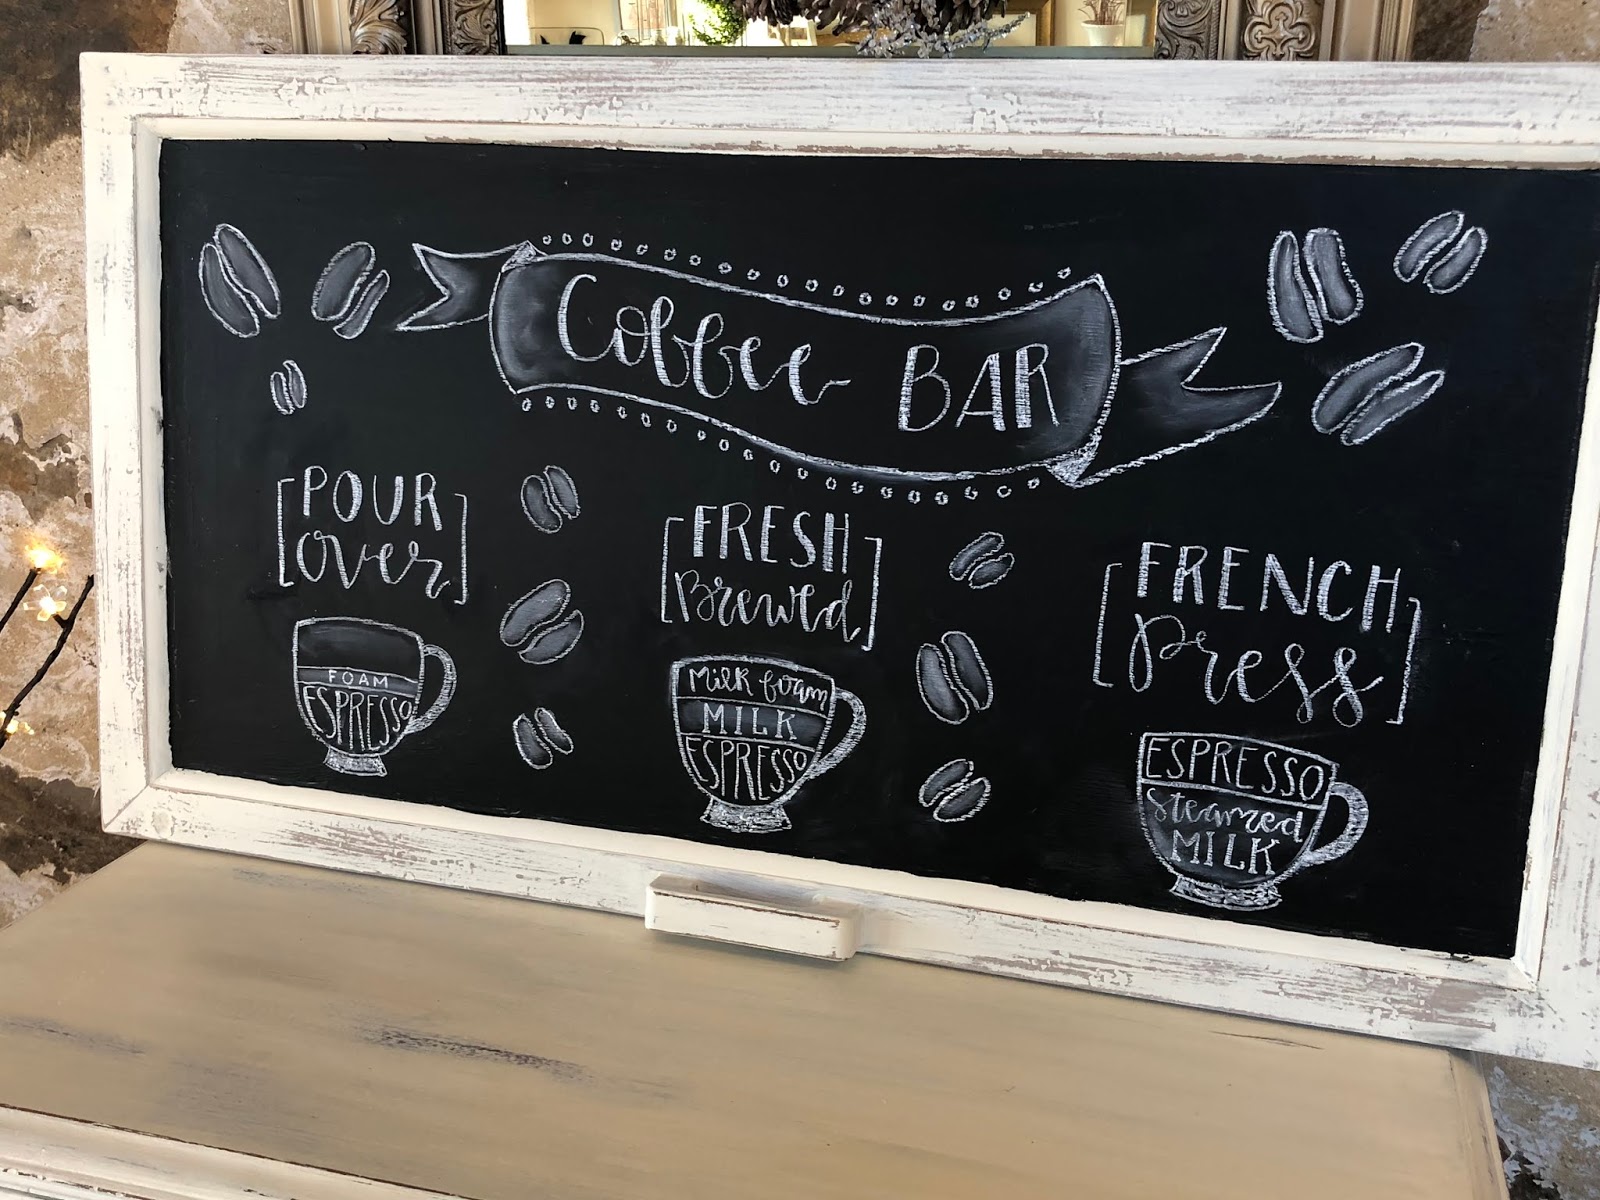 Coffee BAR
[POUR
over]
FOAM
ESPRESSO
[FRESH
Brewed]
Milk foam
MILK
ESPRESSO
[FRENCH
Press]
ESPRESSO
Steamed
MILK